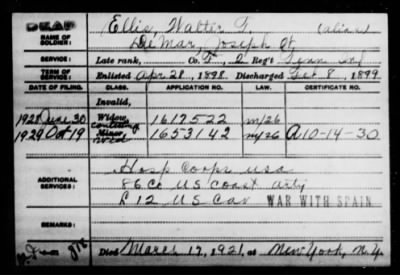 DEAD
NAME OF SOLDIER: Ellis, Walter F. (alias)
De Mar, Joseph H.
SERVICE: Late rank, Co. F, 2 Reg't Tenn Inf
TERM OF SERVICE: Enlisted Apr 28, 1898 Discharged Feb 8, 1899
DATE OF FILING. CLASS. APPLICATION NO. LAW. CERTIFICATE NO.
Invalid,
1928 June 30 Widow 1617522 m/26
Contesting
1929 Oct 19 Minor, 1653142 m/26 A10-14-30
Wid
ADDITIONAL SERVICES: Hosp Corps USA
86 Co US Coast Arty
L 12 US Cav WAR WITH SPAIN
REMARKS:
Died March 17, 1921, at New York, N.Y.